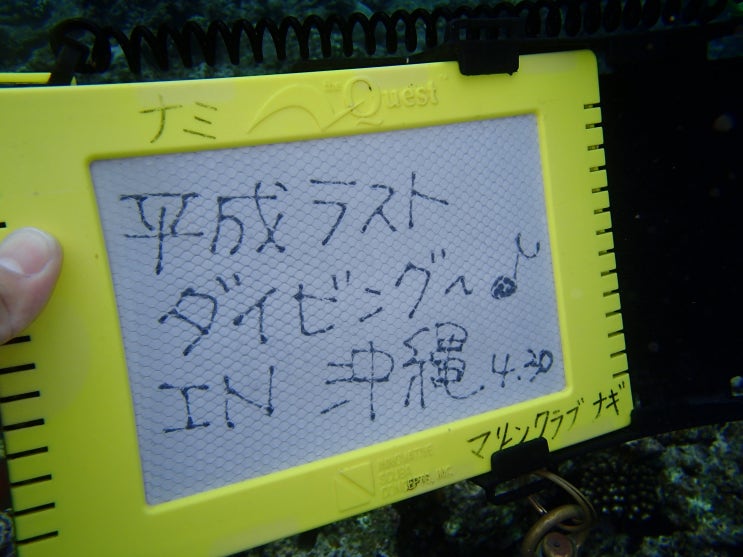 ナミ
Quest
平成ラスト
ダイビング〜♪
IN 沖縄.4.30
マリンクラブ ナギ
INNOVATIVE
SCUBA
CONCEPTS, INC.